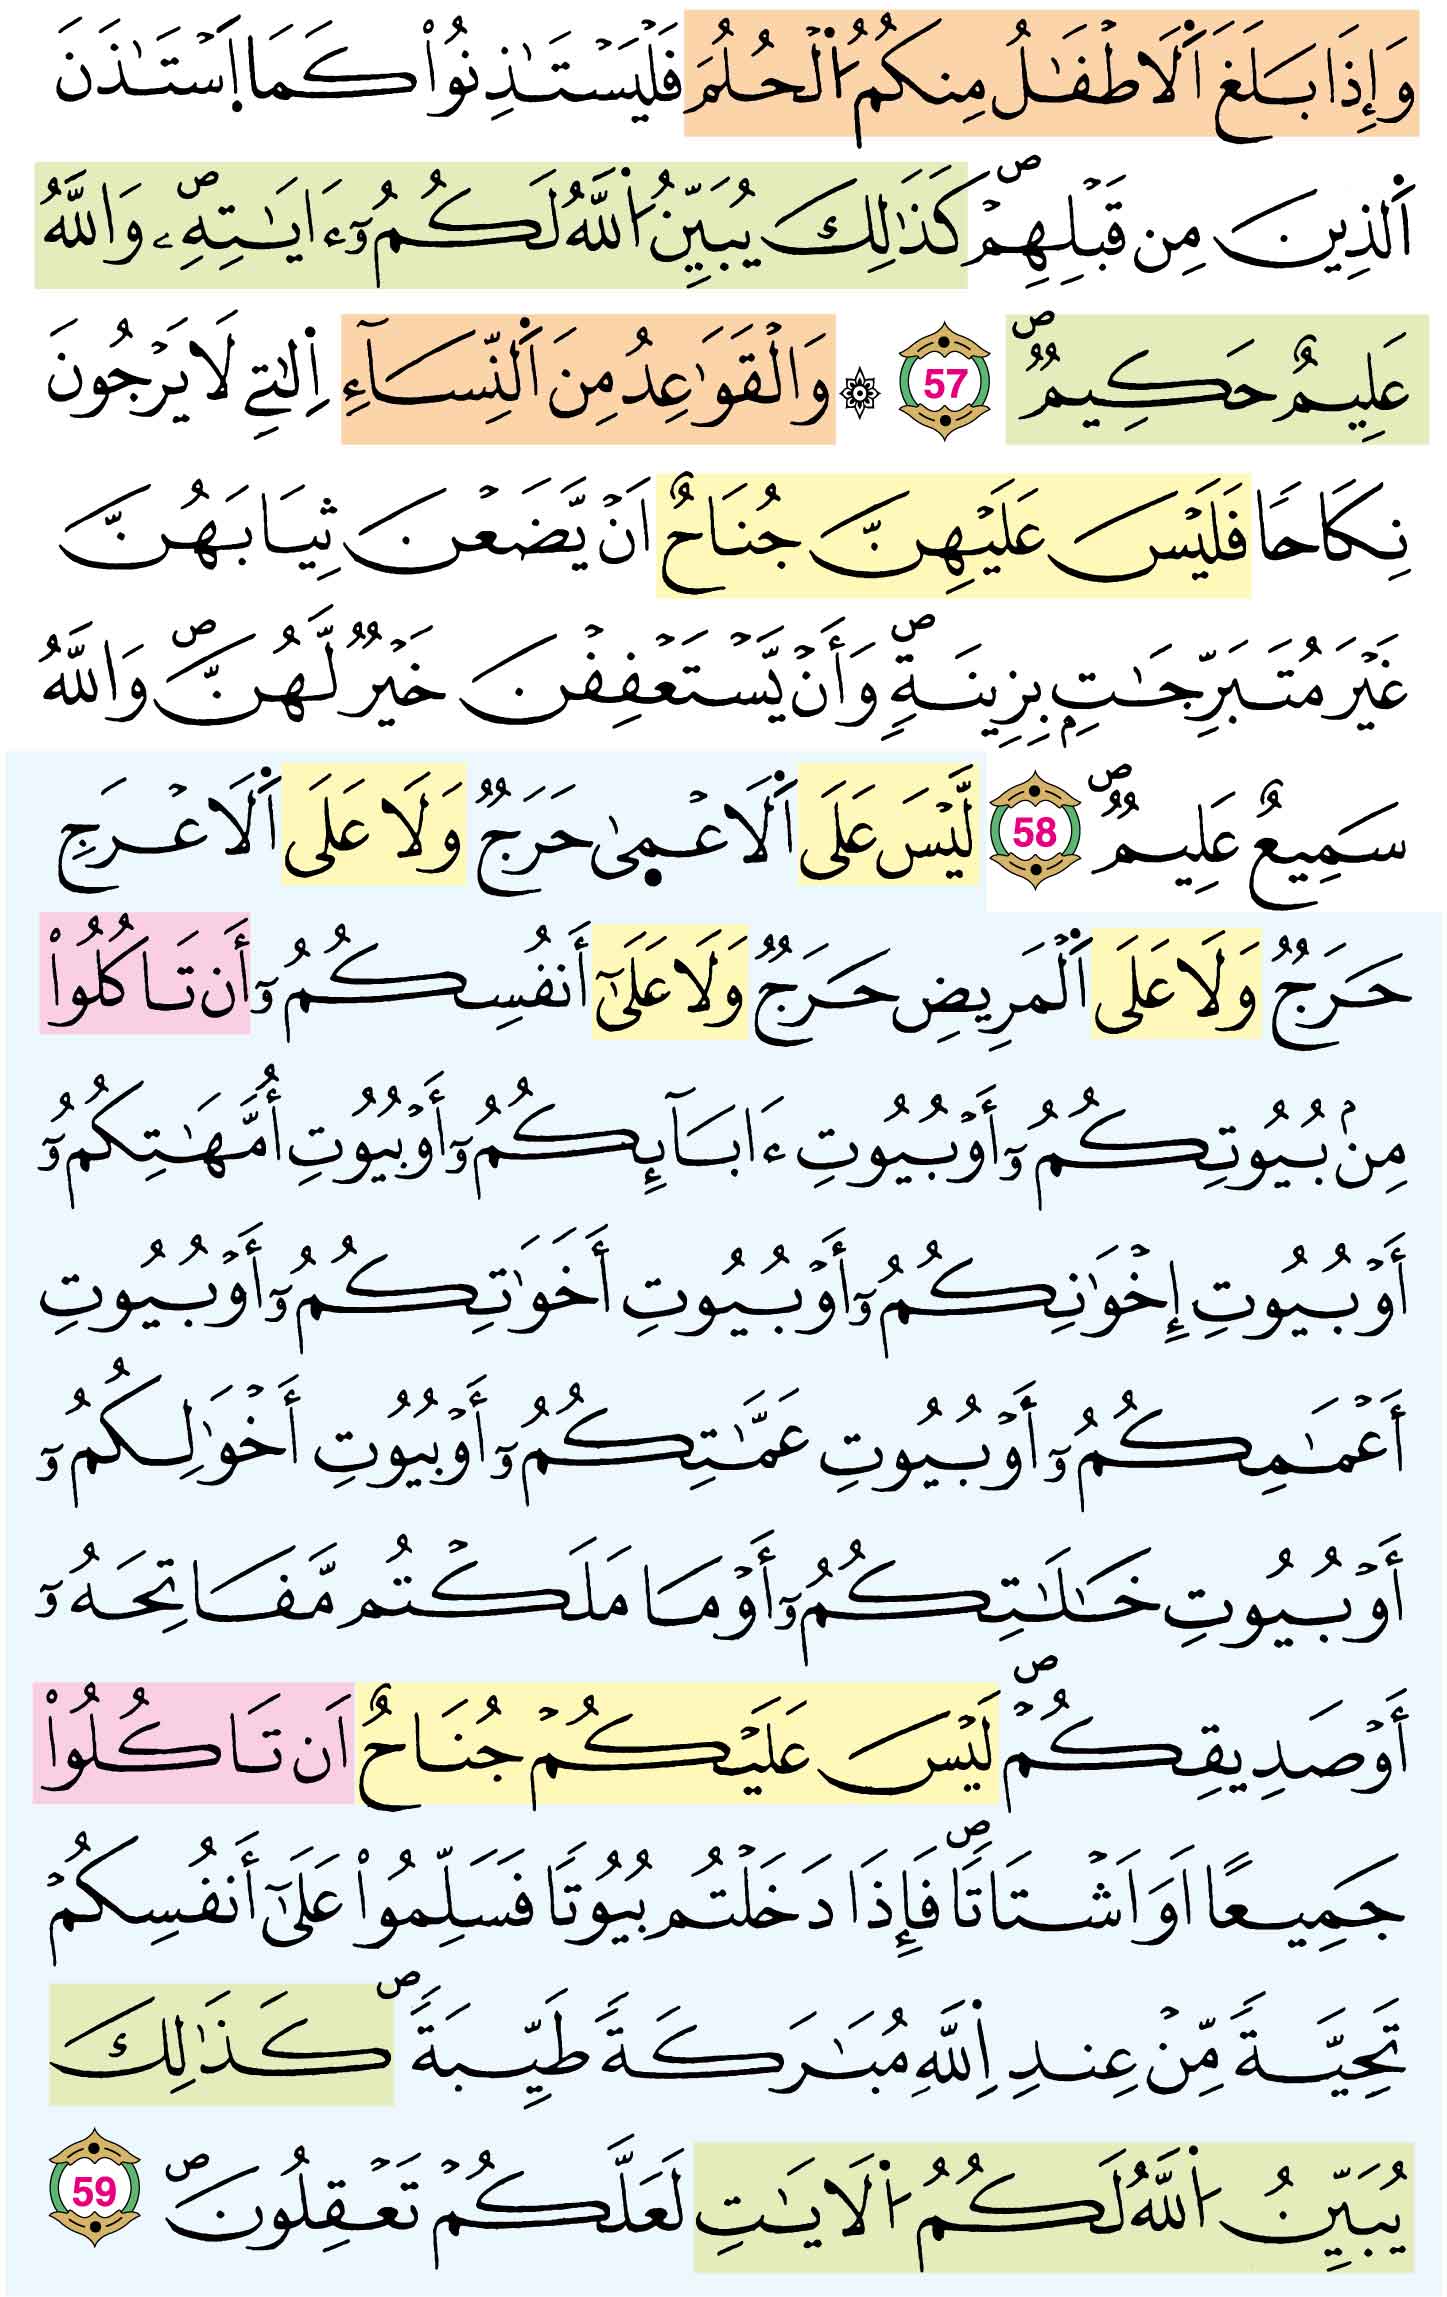 وَإِذَا بَلَغَ اَ۬لَاطْفَٰلُ مِنكُمُ اُ۬لْحُلُمَ فَلْيَسْتَٰذِنُواْ كَمَا اَ۪سْتَٰذَنَ
اَ۬لذِينَ مِن قَبْلِهِمْۖ كَذَٰلِكَ يُبَيِّنُ اُ۬للَّهُ لَكُمُۥٓ ءَايَٰتِهِۦۖ وَاللَّهُ
عَلِيمٌ حَكِيمٞۖ 57 ۞ وَالْقَوَٰعِدُ مِنَ اَ۬لنِّسَآءِ اِ۬لٰتِے لَا يَرْجُونَ
نِكَاحاٗ فَلَيْسَ عَلَيْهِنَّ جُنَاحٌ اَنْ يَّضَعْنَ ثِيَابَهُنَّ
غَيْرَ مُتَبَرِّجَٰتِۢ بِزِينَةٖۖ وَأَنْ يَّسْتَعْفِفْنَ خَيْرٞ لَّهُنَّۖ وَاللَّهُ
سَمِيعٌ عَلِيمٞۖ 58 لَّيْسَ عَلَى اَ۬لَاعْم۪ىٰ حَرَجٞ وَلَا عَلَى اَ۬لَاعْرَجِ
حَرَجٞ وَلَا عَلَى اَ۬لْمَرِيضِ حَرَجٞ وَلَا عَلَىٰٓ أَنفُسِكُمُۥٓ أَن تَاكُلُواْ
مِنۢ بُيُوتِكُمُۥٓ أَوْ بُيُوتِ ءَابَآئِكُمُۥٓ أَوْ بُيُوتِ أُمَّهَٰتِكُمُۥٓ
أَوْ بُيُوتِ إِخْوَٰنِكُمُۥٓ أَوْ بُيُوتِ أَخَوَٰتِكُمُۥٓ أَوْ بُيُوتِ
أَعْمَٰمِكُمُۥٓ أَوْ بُيُوتِ عَمَّٰتِكُمُۥٓ أَوْ بُيُوتِ أَخْوَٰلِكُمُۥٓ
أَوْ بُيُوتِ خَٰلَٰتِكُمُۥٓ أَوْ مَا مَلَكْتُم مَّفَاتِحَهُۥٓ
أَوْ صَدِيقِكُمْۖ لَيْسَ عَلَيْكُمْ جُنَاحٌ اَن تَاكُلُواْ
جَمِيعاً اَوَ اَشْتَاتاٗۖ فَإِذَا دَخَلْتُم بُيُوتاٗ فَسَلِّمُواْ عَلَىٰٓ أَنفُسِكُمْ
تَحِيَّةٗ مِّنْ عِندِ اِ۬للَّهِ مُبَٰرَكَةٗ طَيِّبَةٗۖ كَذَٰلِكَ
يُبَيِّنُ اُ۬للَّهُ لَكُمُ اُ۬لَايَٰتِ لَعَلَّكُمْ تَعْقِلُونَۖ 59